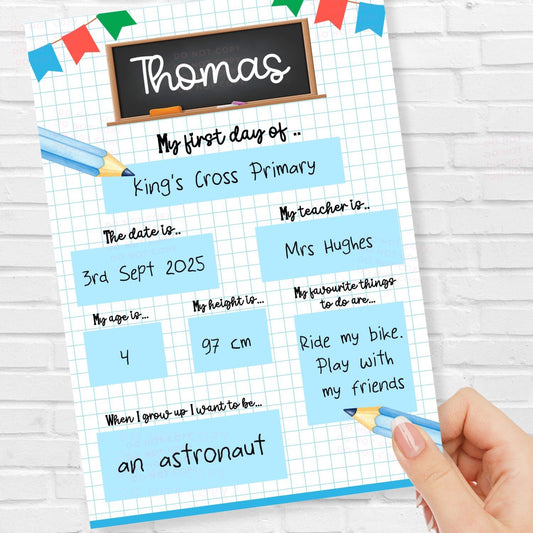 Thomas
My first day of ..
King's Cross Primary
The date is..
My teacher is..
3rd Sept 2025
Mrs Hughes
My age is...
My height is...
My favourite things
to do are...
4
97 cm
Ride my bike.
Play with
my friends
When I grow up I want to be...
an astronaut
DO NOT COPY